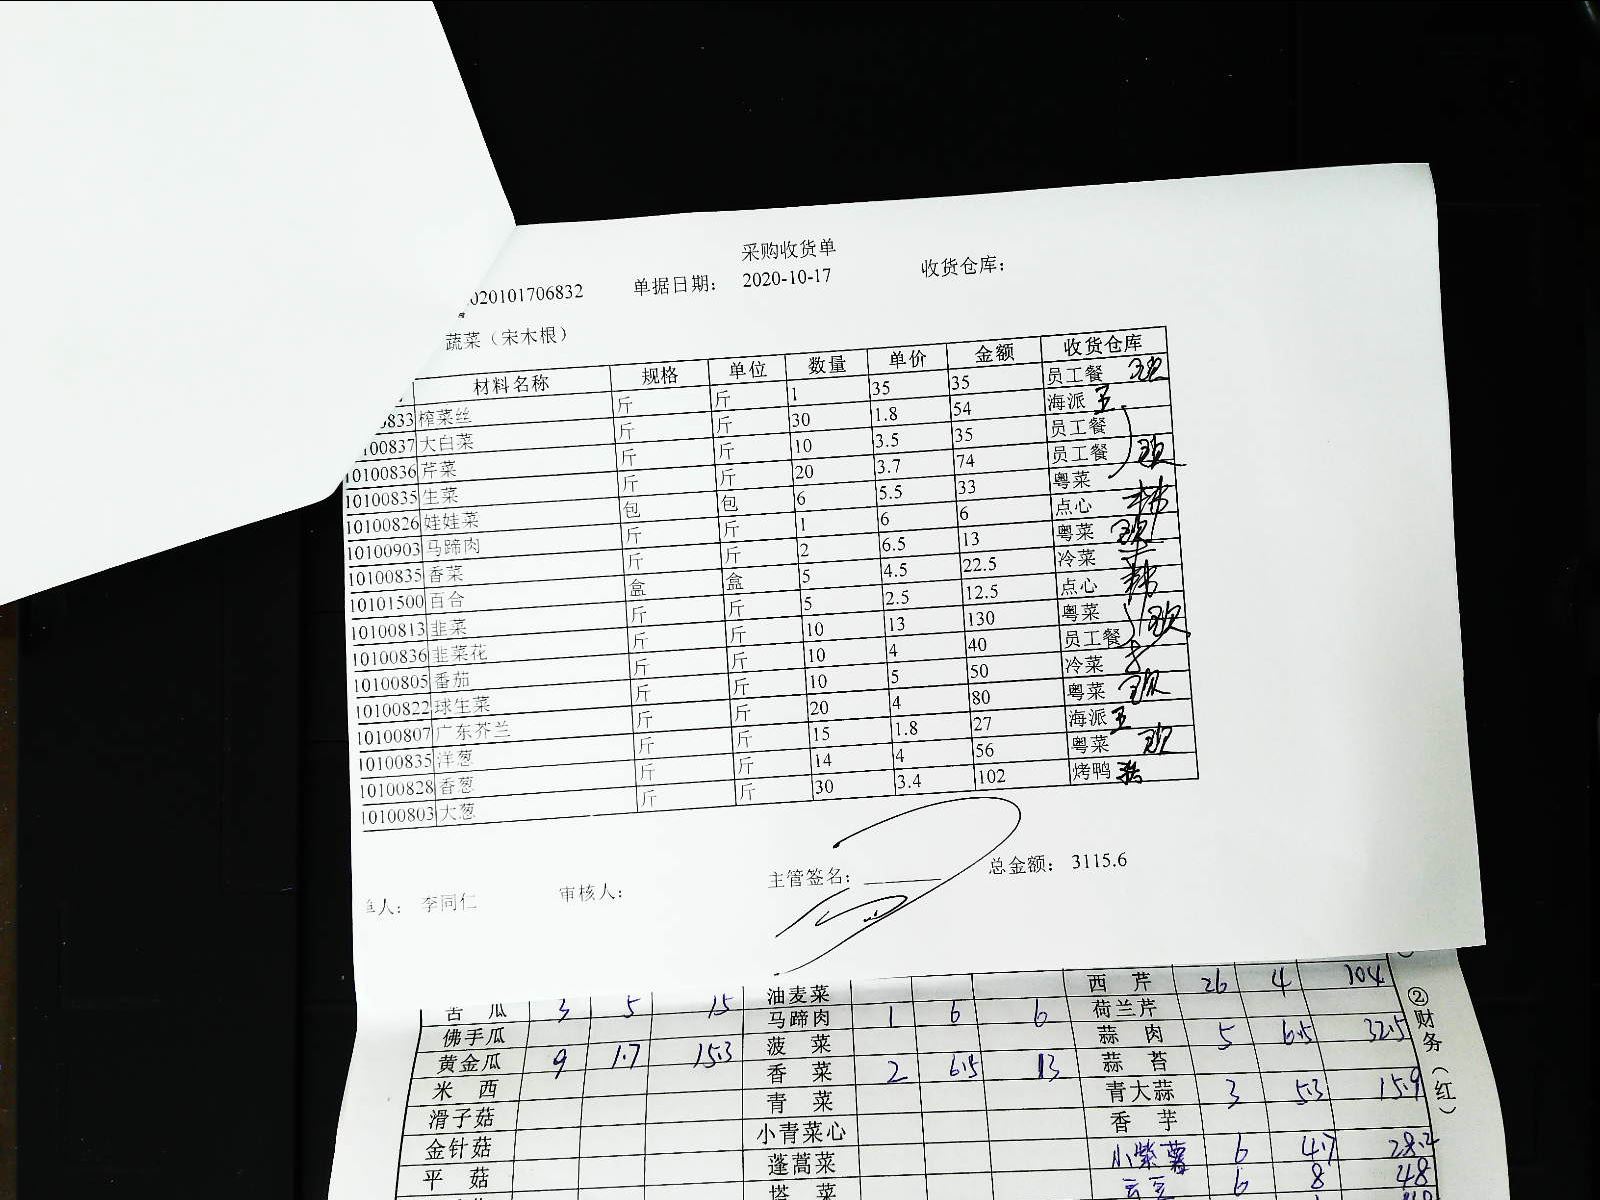 采购收货单
020101706832 单据日期： 2020-10-17 收货仓库：
蔬菜（宋木根）
材料名称 规格 单位 数量 单价 金额 收货仓库
833 榨菜丝 斤 斤 1 35 35 员工餐
100837 大白菜 斤 斤 30 1.8 54 海派 王
10100836 芹菜 斤 斤 10 3.5 35 员工餐
10100835 生菜 斤 斤 20 3.7 74 员工餐
10100826 娃娃菜 包 包 6 5.5 33 粤菜
10100903 马蹄肉 斤 斤 1 6 6 点心
10100835 香菜 斤 斤 2 6.5 13 粤菜
10101500 百合 盒 盒 5 4.5 22.5 冷菜
10100813 韭菜 斤 斤 5 2.5 12.5 点心
10100836 韭菜花 斤 斤 10 13 130 粤菜
10100805 番茄 斤 斤 10 4 40 员工餐
10100822 球生菜 斤 斤 10 5 50 冷菜
10100807 广东芥兰 斤 斤 20 4 80 粤菜
10100835 洋葱 斤 斤 15 1.8 27 海派 王
10100828 香葱 斤 斤 14 4 56 粤菜
10100803 大葱 斤 斤 30 3.4 102 烤鸭
单人： 李同仁 审核人： 主管签名： 总金额： 3115.6
油麦菜 西芹 26 4 104
苦瓜 3 5 15 马蹄肉 1 6 6 荷兰芹
佛手瓜 菠菜 蒜肉 5 6.5 32.5
黄金瓜 9 1.7 15.3 香菜 2 6.5 13 蒜苔
米西 青菜 青大蒜 3 5.3 15.9
滑子菇 小青菜心 香芋
金针菇 蓬蒿菜 小紫薯 6 4.7 28.2
平菇 塔菜 云豆 6 8 48
②财务（红）